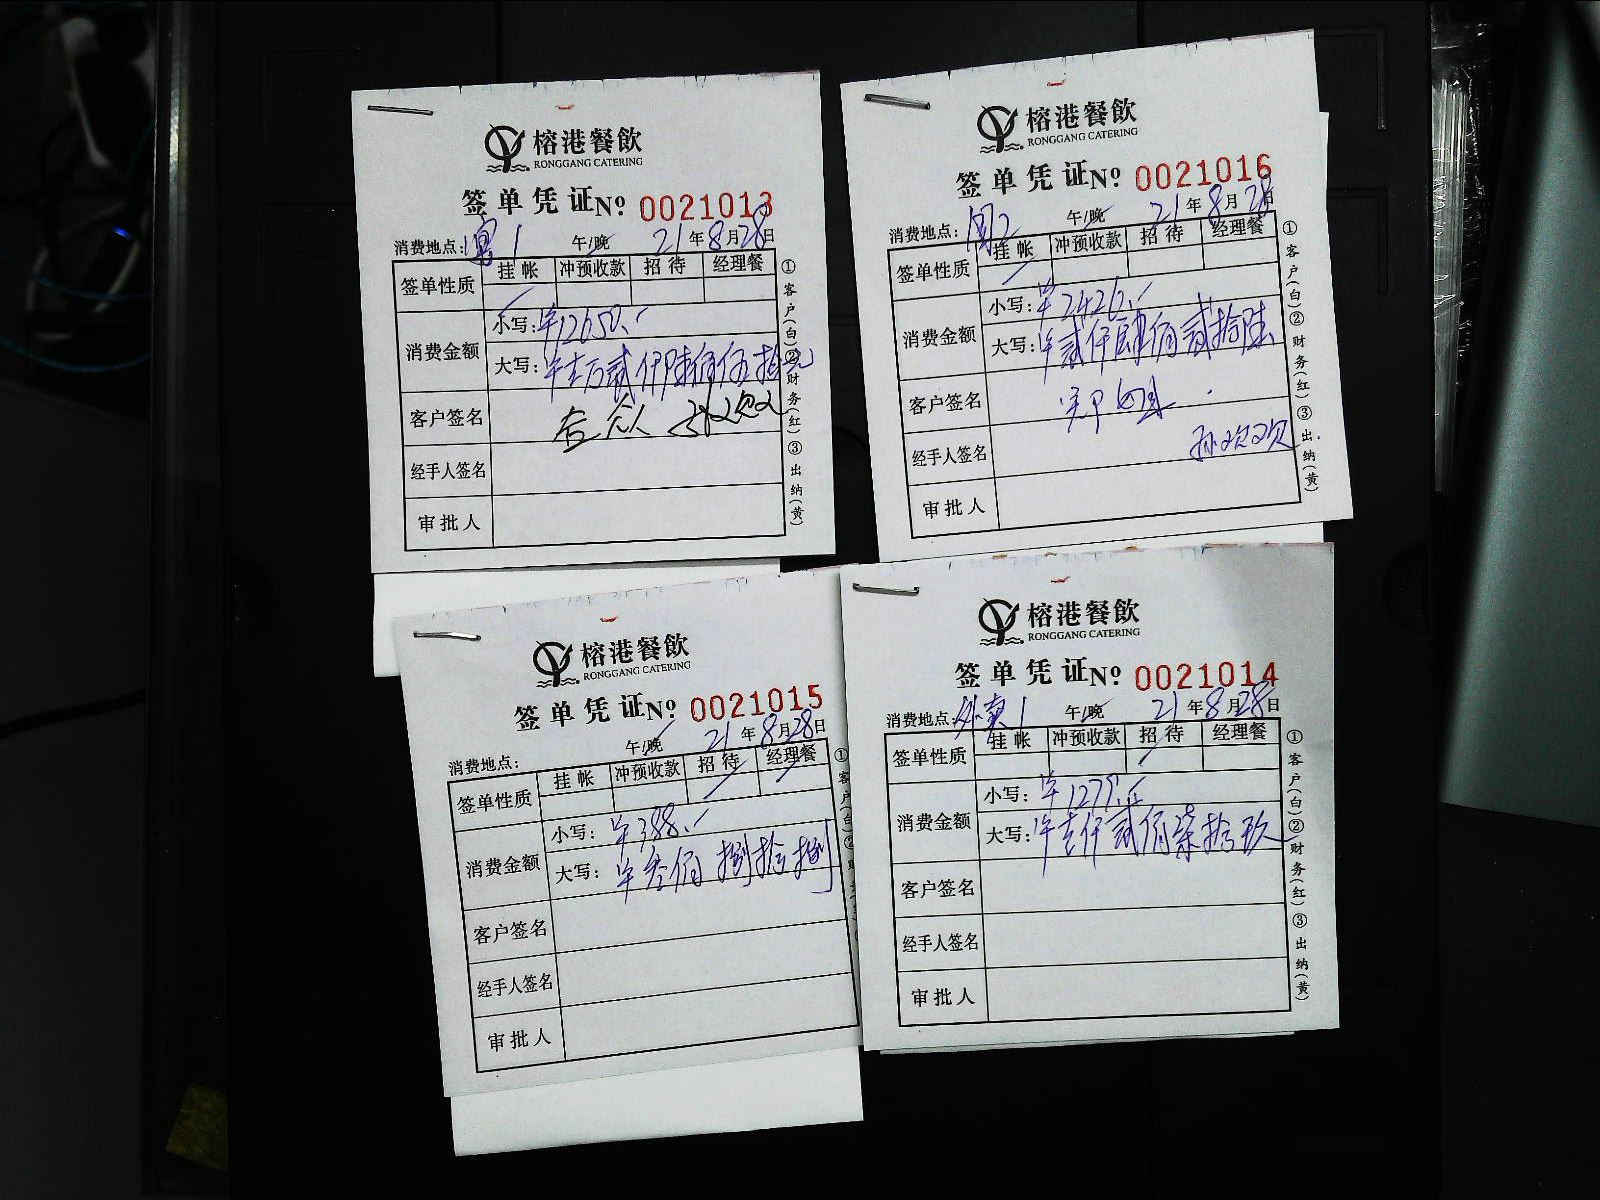 榕港餐飲
RONGGANG CATERING
签单凭证№ 0021013
消费地点: 1 午/晚 21年8月28日
签单性质 挂帐 冲预收款 招待 经理餐
消费金额 小写:¥12650.
大写:¥壹万贰仟陆佰伍拾元
客户签名
经手人签名
审批人
①客户(白)②财务(红)③出纳(黄)
榕港餐飲
RONGGANG CATERING
签单凭证№ 0021016
消费地点: 2 午/晚 21年8月28日
签单性质 挂帐 冲预收款 招待 经理餐
消费金额 小写:¥2426.
大写:¥贰仟肆佰贰拾陆
客户签名
经手人签名 孙欢欢
审批人
①客户(白)②财务(红)③出纳(黄)
榕港餐飲
RONGGANG CATERING
签单凭证№ 0021015
消费地点: 午/晚 21年8月28日
签单性质 挂帐 冲预收款 招待 经理餐
消费金额 小写:¥388.
大写:¥叁佰捌拾捌
客户签名
经手人签名
审批人
榕港餐飲
RONGGANG CATERING
签单凭证№ 0021014
消费地点:外卖1 午/晚 21年8月28日
签单性质 挂帐 冲预收款 招待 经理餐
消费金额 小写:¥1279.
大写:¥壹仟贰佰柒拾玖
客户签名
经手人签名
审批人
①客户(白)②财务(红)③出纳(黄)